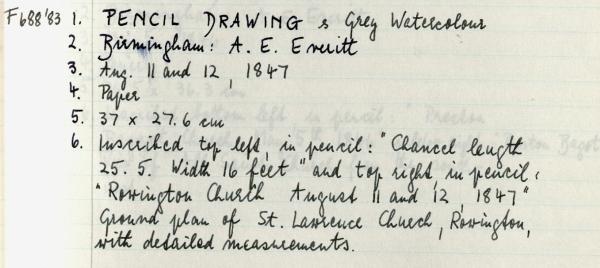 F688'83 1. PENCIL DRAWING & Grey Watercolour
2. Birmingham: A. E. Everitt
3. Aug. 11 and 12, 1847
4. Paper
5. 37 x 27.6 cm
6. Inscribed top left, in pencil: "Chancel length
25. 5. Width 16 feet" and top right, in pencil:
"Rowington Church August 11 and 12, 1847"
Ground plan of St. Lawrence Church, Rowington,
with detailed measurements.